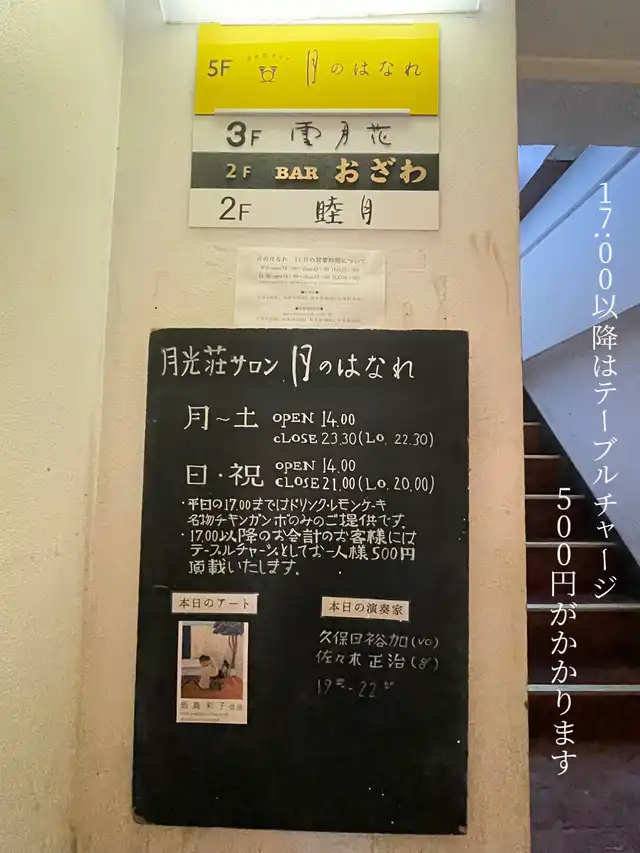 5F 月光荘サロン 月のはなれ
3F 雪月花
2F BAR おざわ
2F 睦月
月のはなれ 11月の営業時間について
月光荘サロン 月のはなれ
月～土 OPEN 14.00
CLOSE 23.30(L.O. 22.30)
日・祝 OPEN 14.00
CLOSE 21.00(L.O. 20.00)
・平日の17.00まではドリンク・レモンケーキ
名物チキンガンボのみのご提供です。
・17.00以降のお会計のお客様には
テーブルチャージとしてお一人様500円
頂戴いたします。
本日のアート
本日の演奏家
久保田裕加(vo)
佐々木正治(g)
19時-22時
17:00以降はテーブルチャージ
500円がかかります